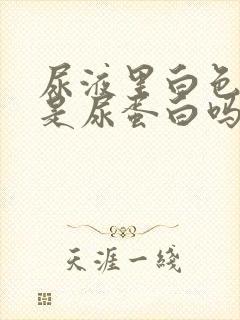 尿液里白色
是尿蛋白吗
天涯一线